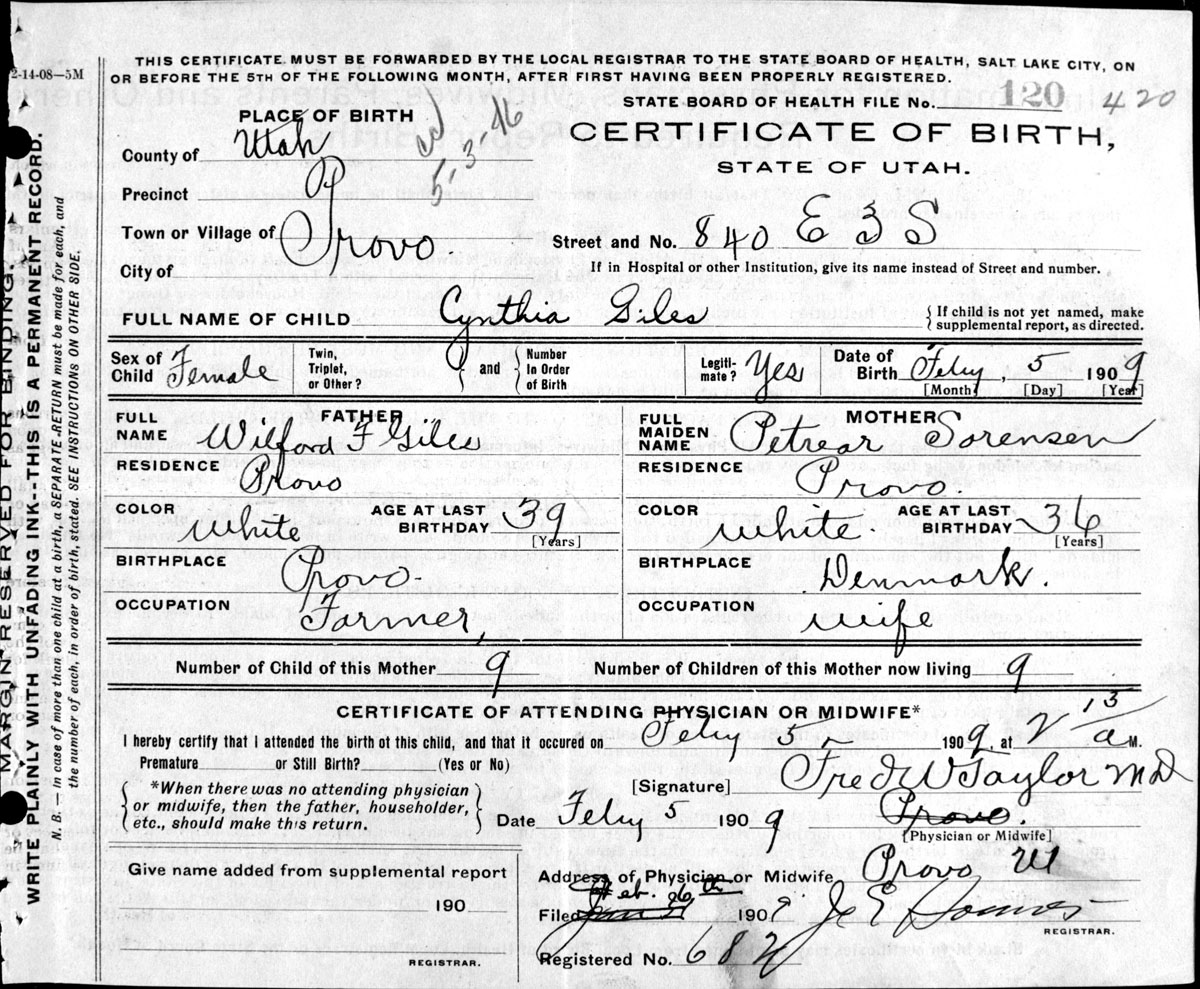 2-14-08—5M
THIS CERTIFICATE MUST BE FORWARDED BY THE LOCAL REGISTRAR TO THE STATE BOARD OF HEALTH, SALT LAKE CITY, ON
OR BEFORE THE 5TH OF THE FOLLOWING MONTH, AFTER FIRST HAVING BEEN PROPERLY REGISTERED.
STATE BOARD OF HEALTH FILE No. 120 420
PLACE OF BIRTH
CERTIFICATE OF BIRTH,
STATE OF UTAH.
County of Utah
Precinct
Town or Village of Provo.
City of
Street and No. 840 E 3 S
If in Hospital or other Institution, give its name instead of Street and number.
FULL NAME OF CHILD Cynthia Giles
If child is not yet named, make
supplemental report, as directed.
Sex of
Child Female
Twin,
Triplet,
or Other?
and
Number
In Order
of Birth
Legiti-
mate? Yes
Date of
Birth Feby, 5 1909
[Month] [Day] [Year]
FATHER
FULL
NAME Wilford F Giles
RESIDENCE Provo
COLOR White
AGE AT LAST
BIRTHDAY 39
[Years]
BIRTHPLACE Provo.
OCCUPATION Farmer,
MOTHER
FULL
MAIDEN
NAME Petrear Sorensen
RESIDENCE Provo.
COLOR White
AGE AT LAST
BIRTHDAY 36
[Years]
BIRTHPLACE Denmark.
OCCUPATION wife
Number of Child of this Mother 9
Number of Children of this Mother now living 9
CERTIFICATE OF ATTENDING PHYSICIAN OR MIDWIFE*
I hereby certify that I attended the birth of this child, and that it occured on Feby 5 1909, at 2 15 a M.
Premature or Still Birth? (Yes or No)
*When there was no attending physician
or midwife, then the father, householder,
etc., should make this return.
[Signature] Fred W Taylor MD
Date Feby 5 1909
Provo.
[Physician or Midwife]
Give name added from supplemental report
190
REGISTRAR.
Address of Physician or Midwife Provo Ut
Filed Feb. 26th 1909
REGISTRAR.
Registered No. 682
MARGIN RESERVED FOR BINDING.
WRITE PLAINLY WITH UNFADING INK--THIS IS A PERMANENT RECORD.
N. B.—In case of more than one child at a birth, a SEPARATE RETURN must be made for each, and
the number of each, in order of birth, stated. SEE INSTRUCTIONS ON OTHER SIDE.